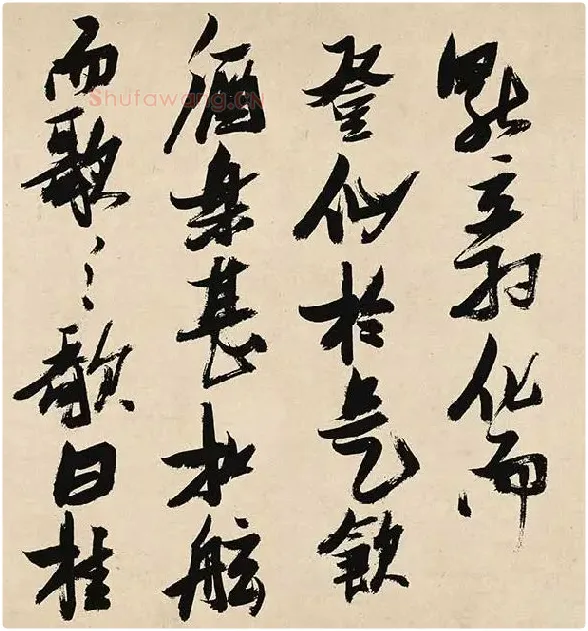 獨立羽化而
登仙於是飲
酒樂甚扣舷
而歌之歌曰桂
Shufawang.CN